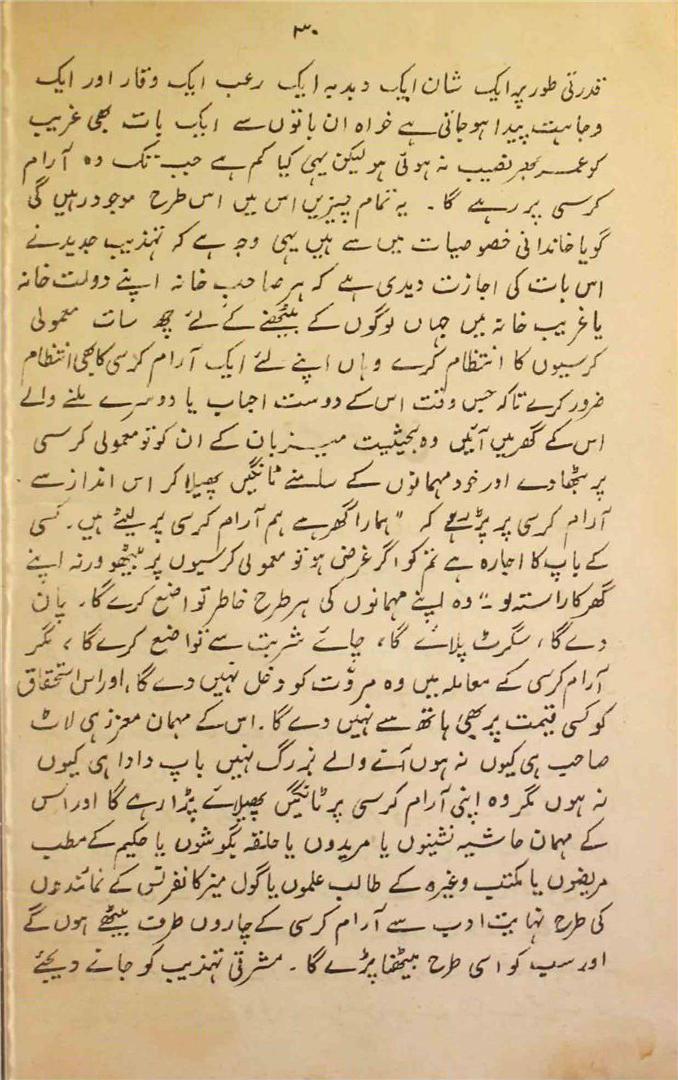 ۳۰
قدرتی طور پر ایک شان ایک دبدبہ ایک رعب ایک وقار اور ایک
وجاہت پیدا ہو جاتی ہے خواہ ان باتوں سے ایک بات بھی غریب
کو عمر بھر نصیب نہ ہوئی ہو لیکن یہی کیا کم ہے جب تک وہ آرام
کرسی پر رہے گا ۔ یہ تمام چیزیں اس میں اس طرح موجود رہیں گی
گویا خاندانی خصوصیات میں سے ہیں یہی وجہ ہے کہ تہذیب جدید نے
اس بات کی اجازت دیدی ہے کہ ہر صاحب خانہ اپنے دولت خانہ
یا غریب خانہ میں جہاں لوگوں کے بیٹھنے کے لئے چھ سات معمولی
کرسیوں کا انتظام کرے وہاں اپنے لئے ایک آرام کرسی کا بھی انتظام
ضرور کرے تاکہ جس وقت اس کے دوست احباب یا دوسرے ملنے والے
اس کے گھر میں آئیں وہ بحیثیت میزبان کے ان کو تو معمولی کرسی
پر بٹھا دے اور خود مہمانوں کے سامنے ٹانگیں پھیلا کر اس انداز سے
آرام کرسی پر پڑ رہے کہ "ہمارا گھر ہے ہم آرام کرسی پر لیٹے ہیں ۔ کسی
کے باپ کا اجارہ ہے تم کو اگر غرض ہو تو معمولی کرسیوں پر بیٹھو ورنہ اپنے
گھر کا راستہ لو ۔" وہ اپنے مہمانوں کی ہر طرح خاطر تواضع کرے گا ۔ پان
دے گا ، سگرٹ پلائے گا ، چائے شربت سے تواضع کرے گا ، مگر
آرام کرسی کے معاملہ میں وہ مروّت کو دخل نہیں دے گا ، اور اس استحقاق
کو کسی قیمت پر بھی ہاتھ سے نہیں دے گا ۔ اس کے مہمان معزز ہی لاٹ
صاحب ہی کیوں نہ ہوں آنے والے بزرگ نہیں باپ دادا ہی کیوں
نہ ہوں مگر وہ اپنی آرام کرسی پر ٹانگیں پھیلائے پڑا رہے گا اور اس
کے مہمان حاشیہ نشینوں یا مریدوں یا حلقہ بگوشوں یا حکیم کے مطب
مریضوں یا مکتب وغیرہ کے طالب علموں یا گول میز کانفرنس کے نمائندوں
کی طرح نہایت ادب سے آرام کرسی کے چاروں طرف بیٹھے ہوں گے
اور سب کو اسی طرح بیٹھنا پڑے گا ۔ مشرقی تہذیب کو جانے دیجئے